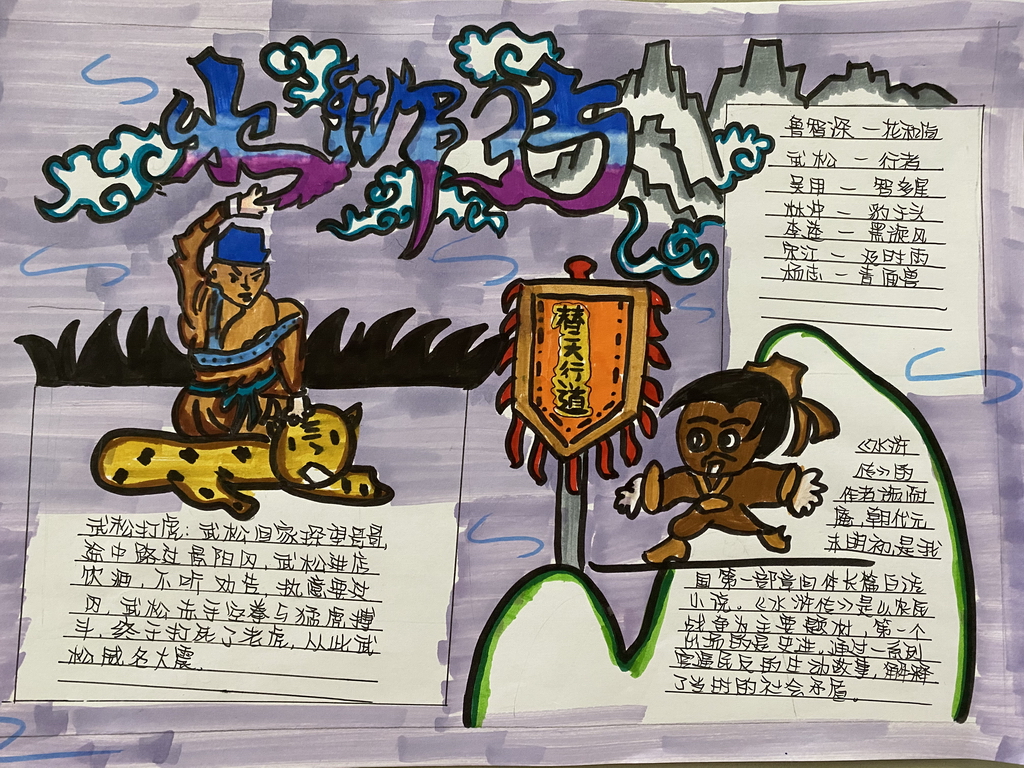 水浒传
鲁智深一花和尚
武松一行者
吴用一智多星
林冲一豹子头
李逵一黑旋风
宋江一及时雨
杨志一青面兽
替天行道
武松打虎：武松回家探望哥哥，
途中路过景阳冈，武松进店
饮酒，不听劝告，执意要过
冈，武松赤手空拳与猛虎搏
斗，终于打死了老虎，从此武
松威名大震.
《水浒
传》的
作者施耐
庵，朝代元
末明初，是我
国第一部章回体长篇白话
小说。《水浒传》是以农民
战争为主要题材，第一个
出场的是史进，通过一系列
反的生动故事，解释
了当时的社会矛盾。